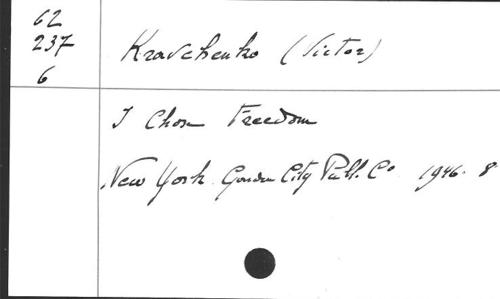 62
237
6
Kravchenko (Victor)
I Chose Freedom
New York. Garden City Publ. Co 1946. 8